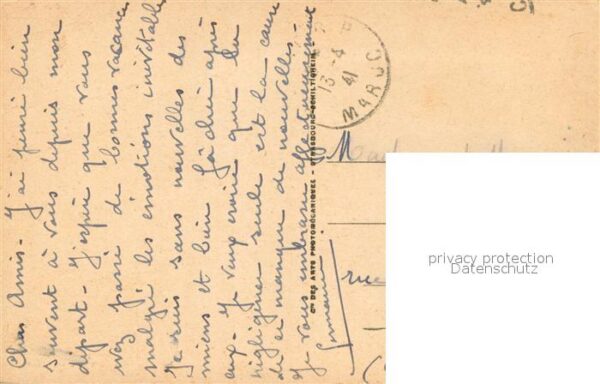 Chers Amis - J'ai pensé bien
souvent à vous depuis mon
départ - J'espère que vous
avez passé de bonnes vacances
malgré les émotions inévitables
Je suis sans nouvelles des
miens et bien fâchée après
eux - Je veux croire que la
négligence seule est la cause
de ce manque de nouvelles -
Je vous embrasse affectueusement
Germaine
Cie DES ARTS PHOTOMÉCANIQUES - STRASBOURG-SCHILTIGHEIM
15 - 4
41
MAROC
Madame
rue
privacy protection
Datenschutz